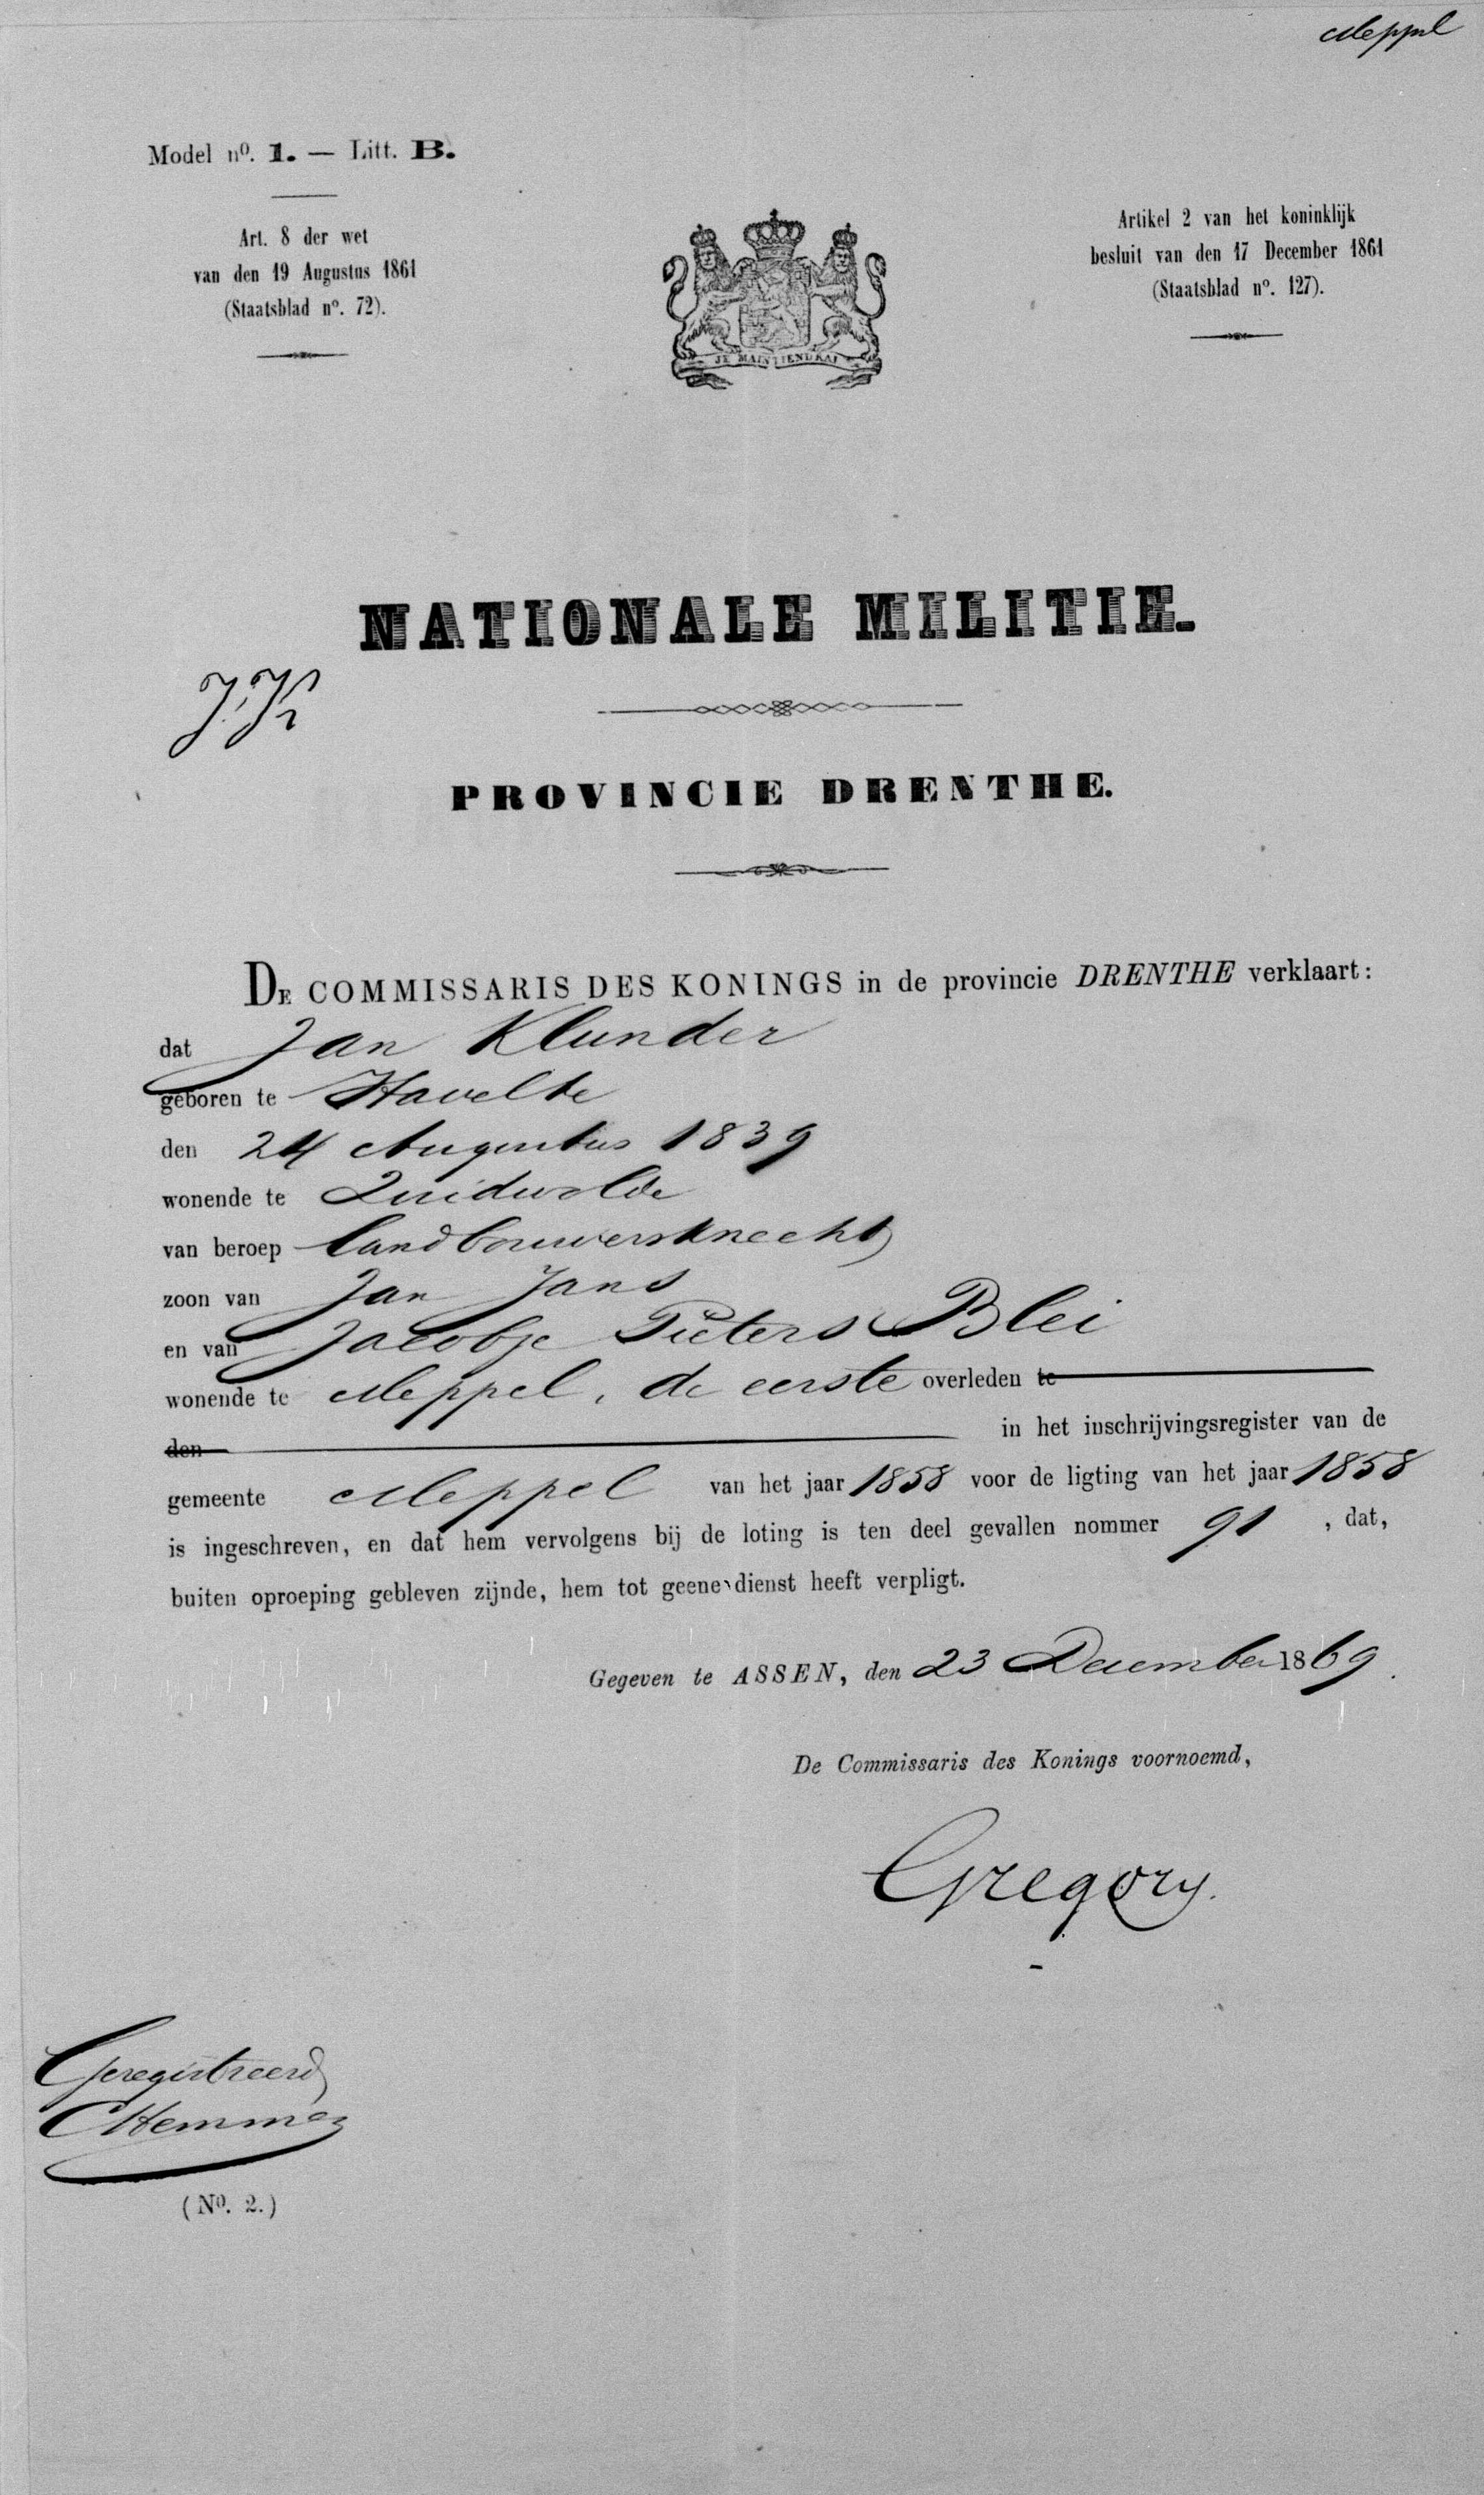 Meppel
Model nº. 1. — Litt. B.
Art. 8 der wet
van den 19 Augustus 1861
(Staatsblad nº. 72).
Artikel 2 van het koninklijk
besluit van den 17 December 1861
(Staatsblad nº. 127).
JE MAINTIENDRAI
NATIONALE MILITIE.
J.K
PROVINCIE DRENTHE.
DE COMMISSARIS DES KONINGS in de provincie DRENTHE verklaart:
dat Jan Klunder
geboren te Havelte
den 24 Augustus 1839
wonende te Zuidwolde
van beroep landbouwersknecht
zoon van Jan Jans
en van Jacobje Pieters Blei
wonende te Meppel, de eerste overleden te
den in het inschrijvingsregister van de
gemeente Meppel van het jaar 1858 voor de ligting van het jaar 1858
is ingeschreven, en dat hem vervolgens bij de loting is ten deel gevallen nommer 91 , dat,
buiten oproeping gebleven zijnde, hem tot geene dienst heeft verpligt.
Gegeven te ASSEN, den 23 December 1869.
De Commissaris des Konings voornoemd,
Gregory.
Geregistreerd
CHemmes
(Nº. 2.)